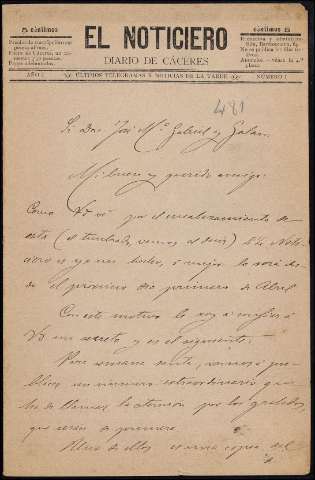 5 céntimos
EL NOTICIERO
céntimos 5
DIARIO DE CÁCERES
AÑO I
ÚLTIMOS TELEGRAMAS Y NOTICIAS DE LA TARDE
NÚMERO 1
481
Sr. Don José Mª Gabriel y Galán.
Mi bueno y querido amigo:
Como Vd. vé por el encabezamiento de
esta (el timbrado, vamos al decir) El Noti-
ciero es ya un hecho, ó mejor lo será des-
de el próximo dia primero de Abril.
Con este motivo le voy á confiar á
Vd. un secreto, y es el siguiente:
Para semana santa, vamos á pu-
blicar un número extraordinario que
ha de llamar la atención por los grabados,
que serán de primera.
Uno de ellos es una copia del